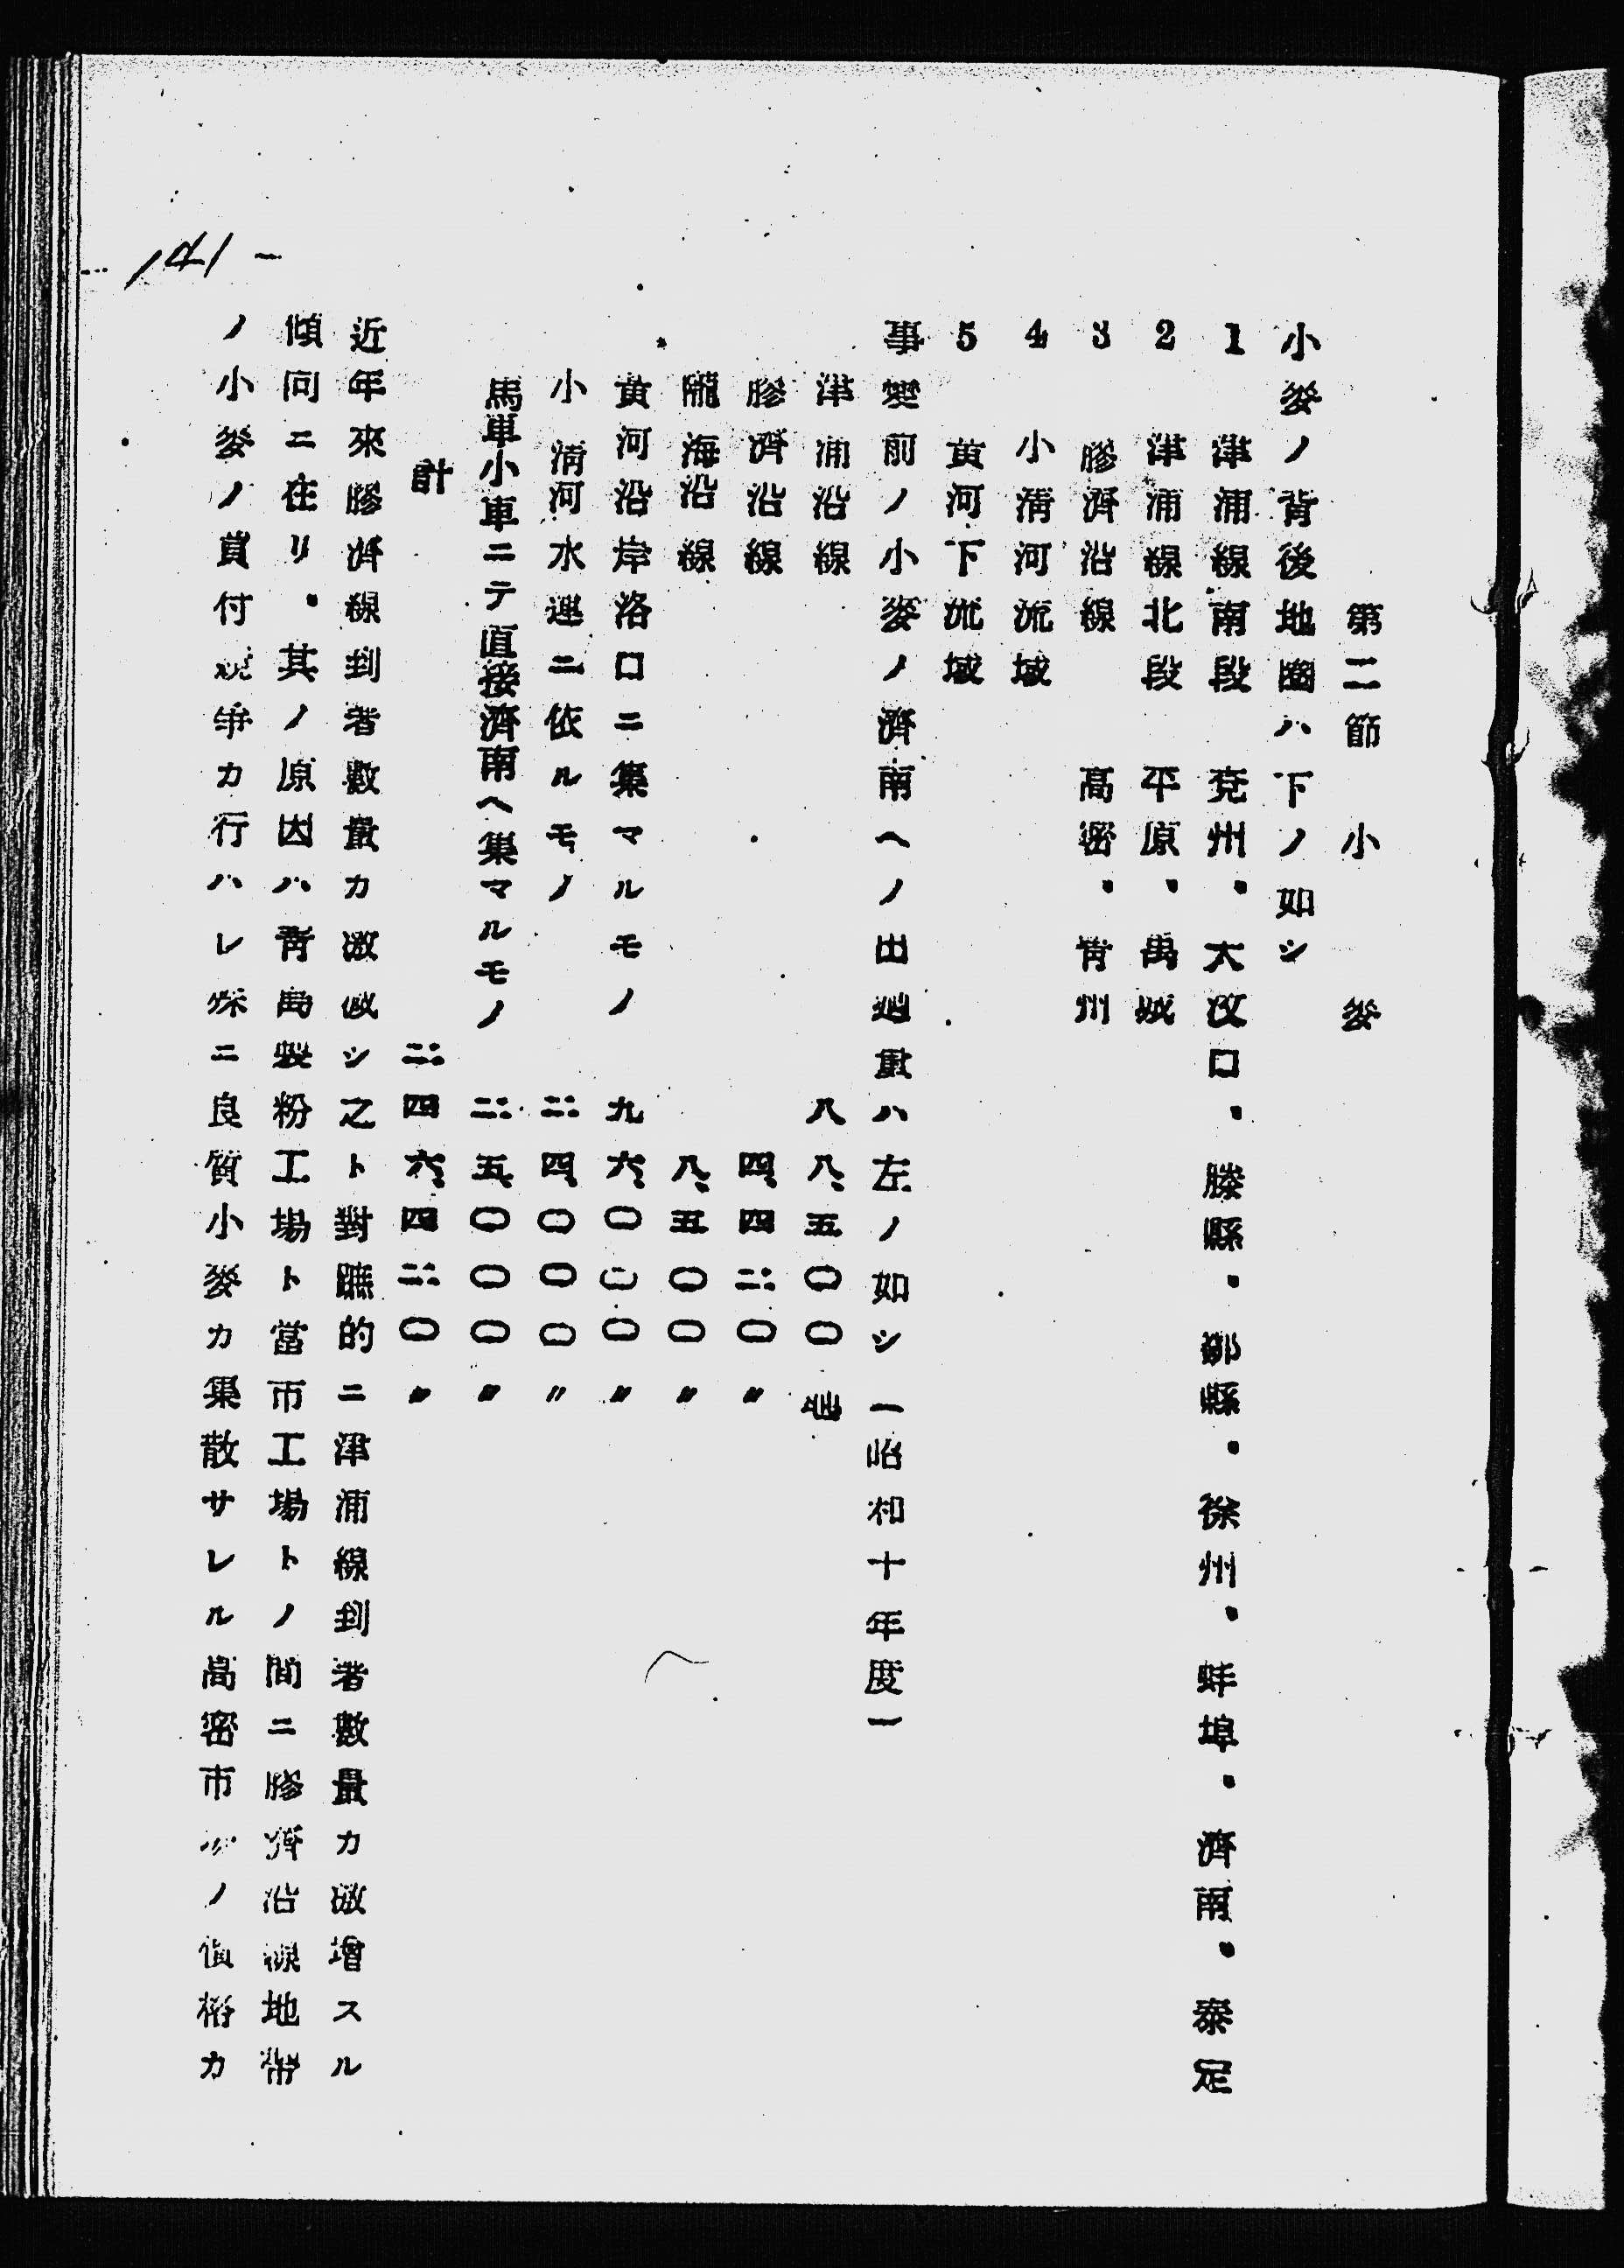 第二節　小麥
小麥ノ背後地圈ハ下ノ如シ
1　津浦線南段　兗州、大汶口、滕縣、鄒縣、徐州、蚌埠、濟南、泰定
2　津浦線北段　平原、禹城
3　膠濟沿線　高密、靑州
4　小淸河流域
5　黃河下流域
事變前ノ小麥ノ濟南ヘノ出廻量ハ左ノ如シ（昭和十年度）
津浦沿線　八八、五〇〇
膠濟沿線　四、四二〇〃
隴海沿線　八、五〇〇〃
黃河沿岸洛口ニ集マルモノ　九六、〇〇〇〃
小淸河水運ニ依ルモノ　二四、〇〇〇〃
馬車小車ニテ直接濟南ヘ集マルモノ　二五、〇〇〇〃
計　二四六、四二〇〃
近年來膠濟線到著數量カ激減シ之ト對蹠的ニ津浦線到著數量カ激增スル
傾向ニ在リ、其ノ原因ハ靑島製粉工場ト當市工場トノ間ニ膠濟沿線地帶
ノ小麥ノ買付競爭カ行ハレ殊ニ良質小麥カ集散サレル高密市場ノ價格カ
-141-